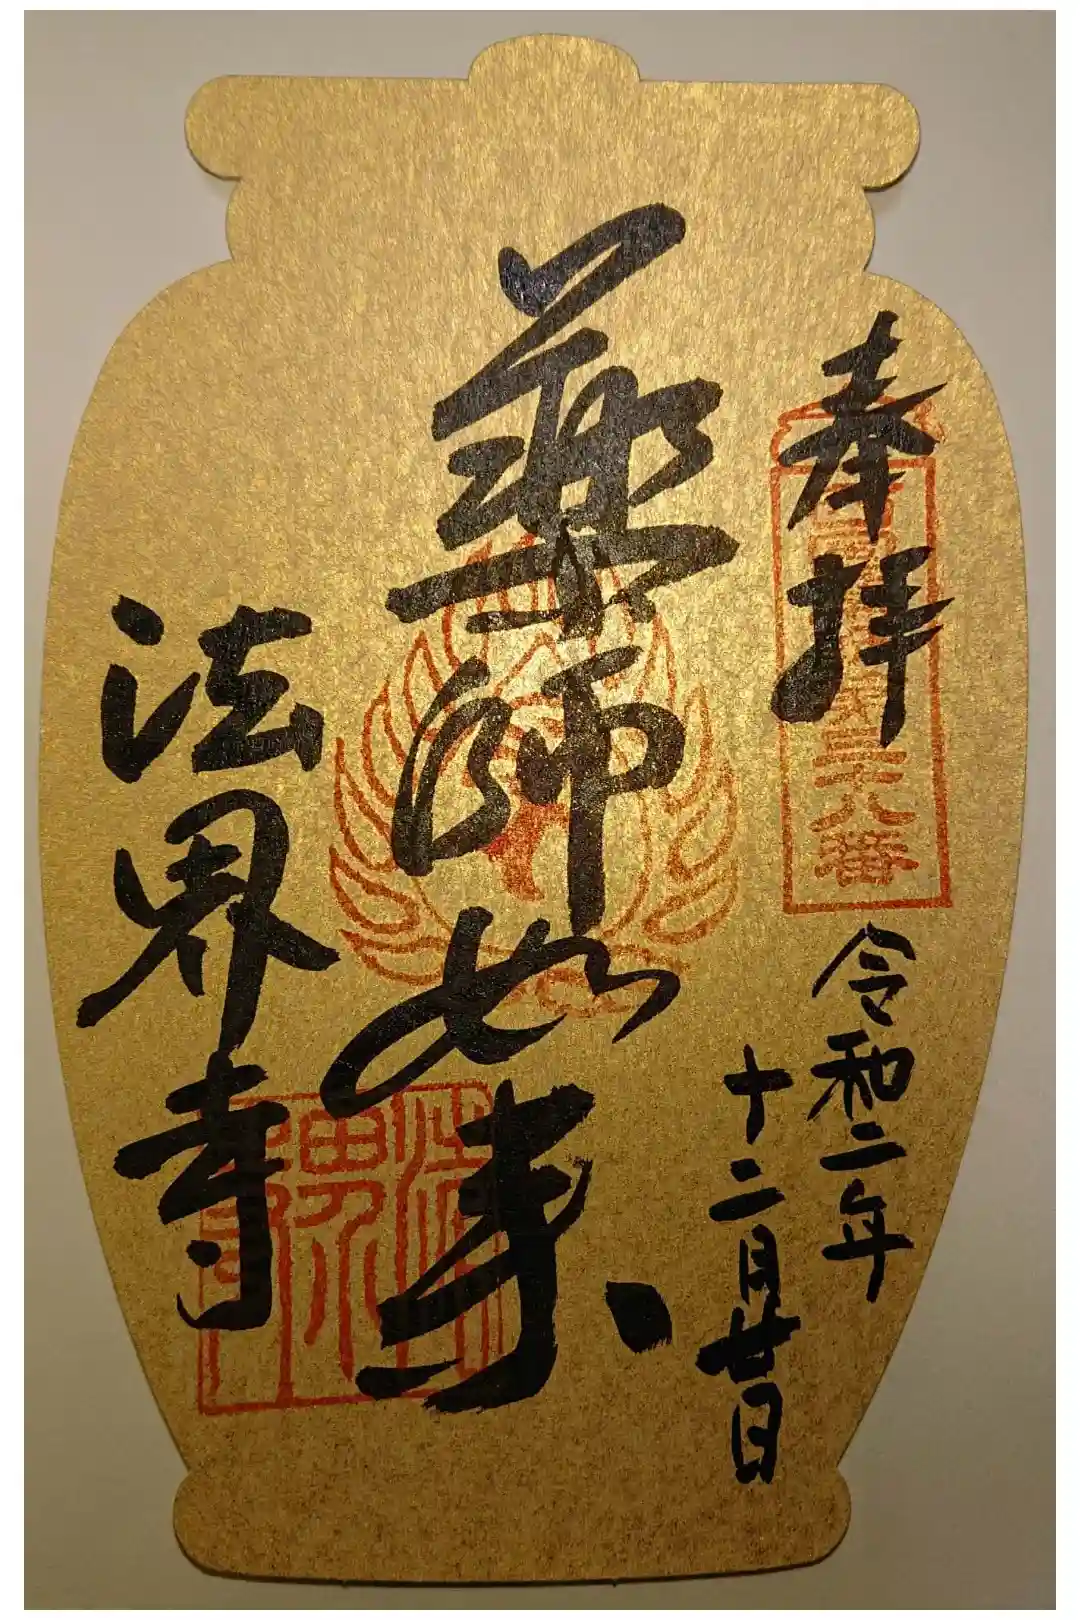 奉拝
令和二年
十二月廿日
薬師如来
法界寺
三十八番
法界寺